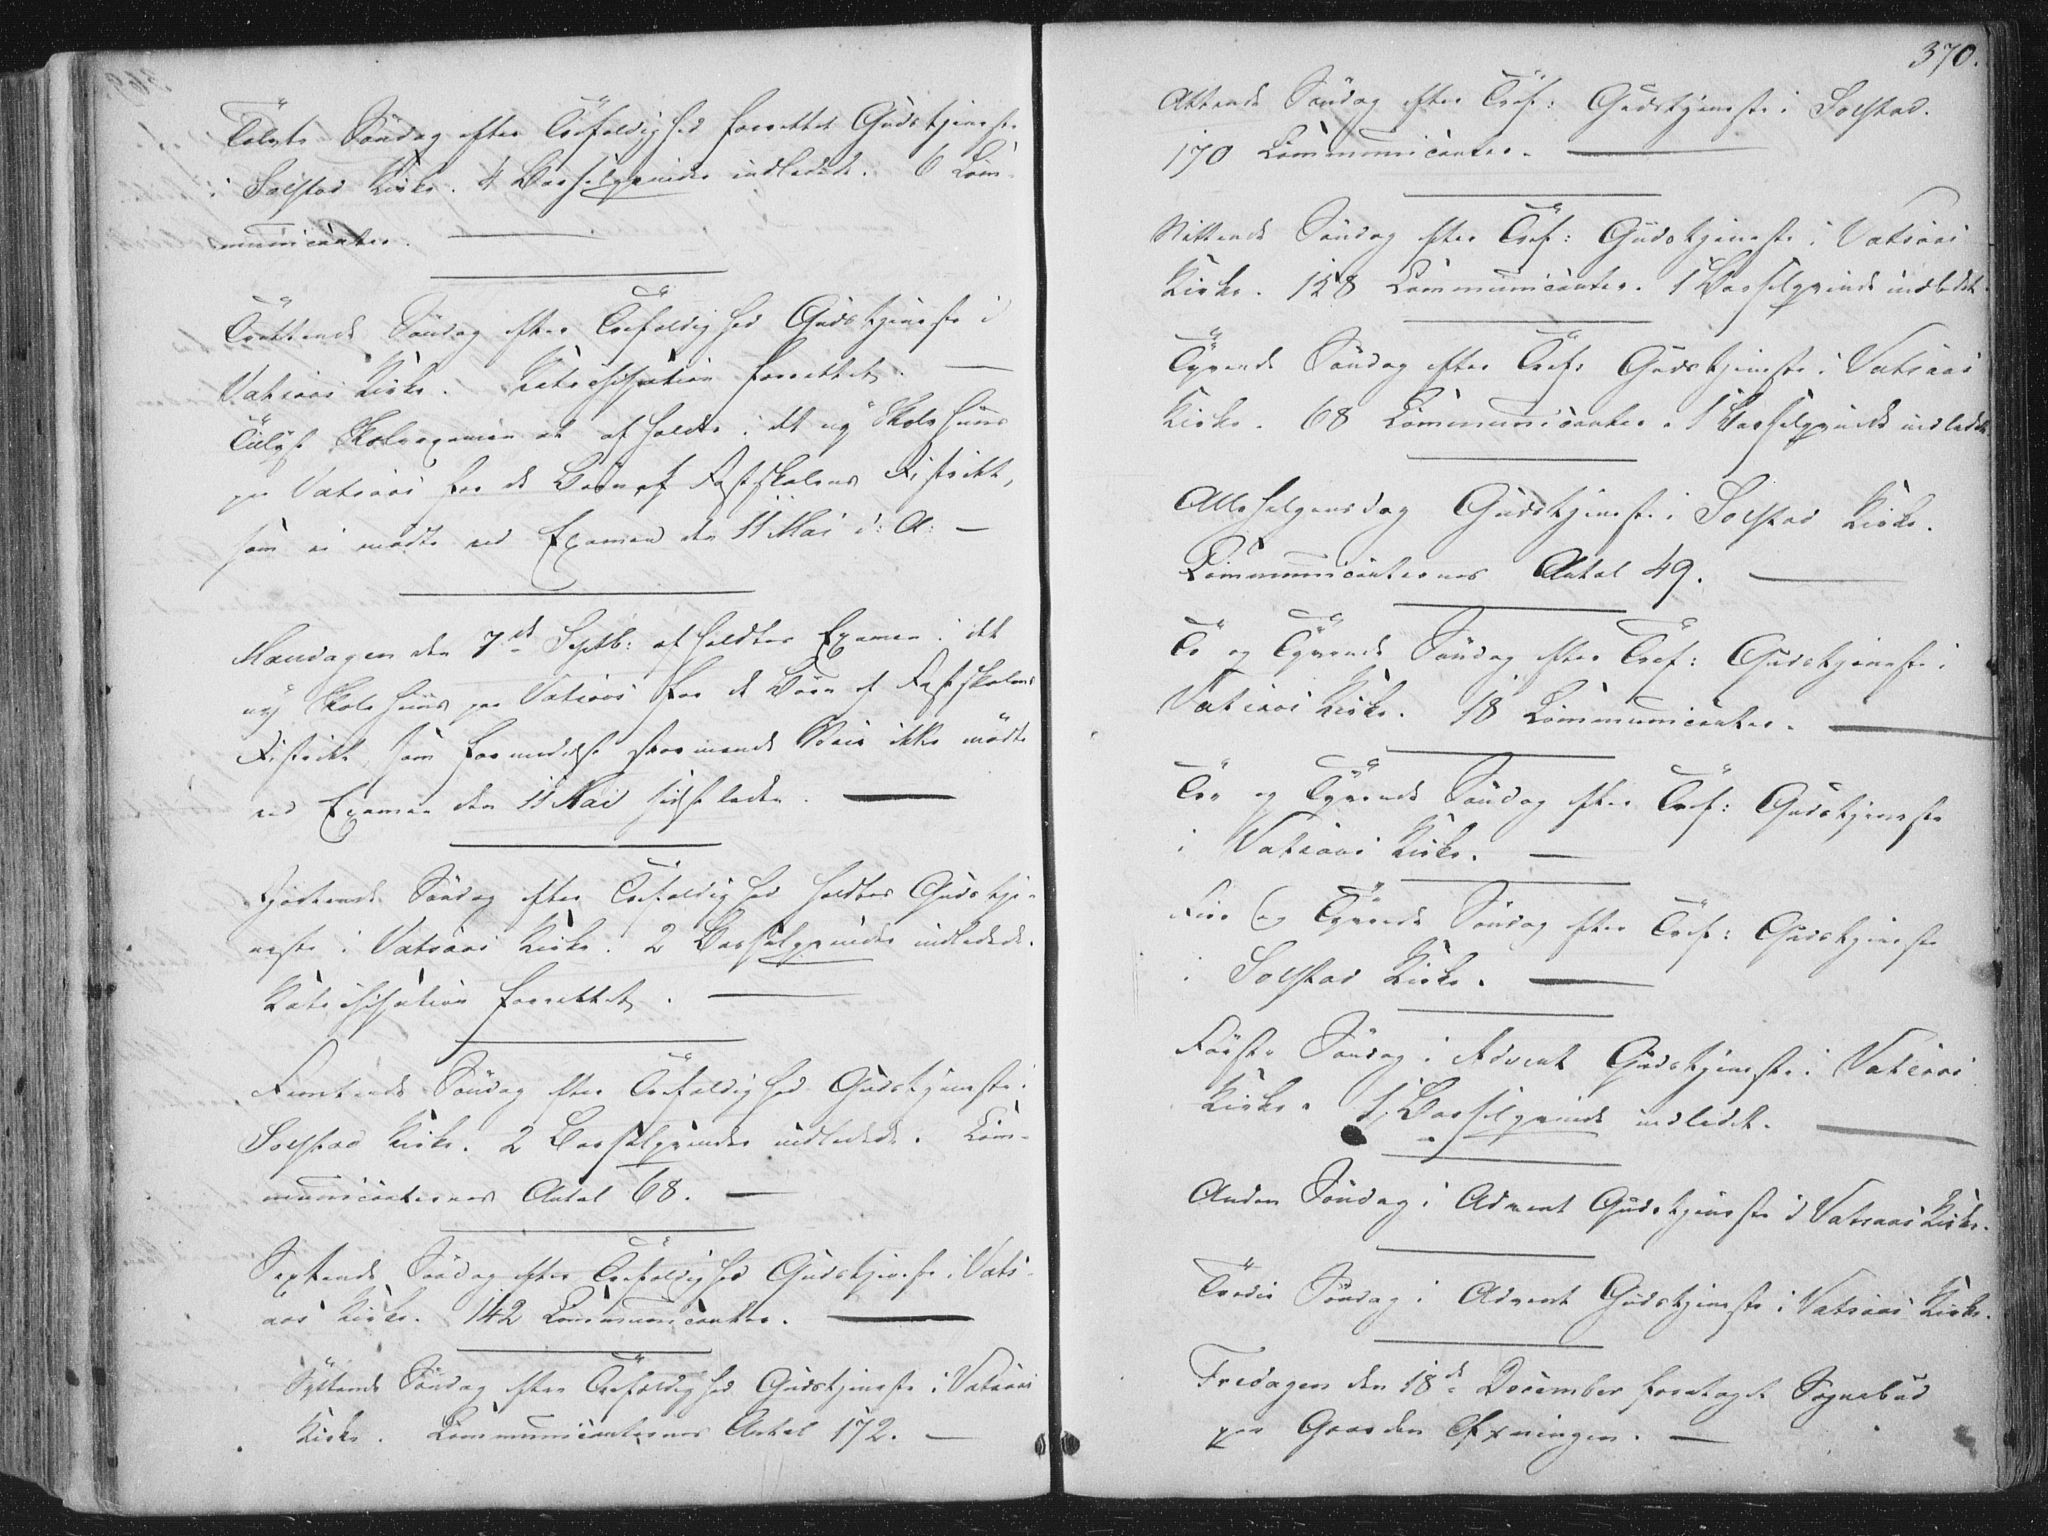 Tolvte Söndag efter Trefoldighed forrettet Gudstjeneste
i Solstad Kirke. 4 Barselqvinder indledede. 6 Com-
municanter.
Trettende Söndag efter Trefoldighed Gudstjeneste i
Vatsaas Kirke. Katechisation forrettet.
Tillyst Skoleexamen at afholdes i det ny Skolehuus
paa Vatsaas for de Börn af Fastskolens District,
som ei mødte ved Examen den 11 Mai d: A:
Mandagen den 7de Septb: afholdtes Examen i det
nye Skolehuus paa Vatsaas for de Börn af Fastskolens
District, som formedelst stormende Veir ikke mødte
ved Examen den 11 Mai sidstleden.
Fjortende Söndag efter Trefoldighed holdtes Gudstje-
neste i Vatsaas Kirke. 2 Barselqvinder indledede.
Katechisation forrettet.
Femtende Söndag efter Trefoldighed Gudstjeneste i
Solstad Kirke. 2 Barselqvinder indledede. Com-
municanternes Antal 68.
Sextende Söndag efter Trefoldighed Gudstjeneste i Vats-
aas Kirke. 142 Communicanter.
Syttende Söndag efter Trefoldighed Gudstjeneste i Vatsaas
Kirke. Communicanternes Antal 172.
370.
Attende Söndag efter Tref: Gudstjeneste i Solstad.
170 Communicanter.
Nittende Söndag efter Tref: Gudstjeneste i Vatsaas
Kirke. 158 Communicanter. 1 Barselqvinde indledet.
Tyvende Söndag efter Tref: Gudstjeneste i Vatsaas
Kirke. 68 Communicanter. 1 Barselqvinde indledet.
Allehelgensdag Gudstjeneste i Solstad Kirke.
Communicanternes Antal 49.
To og Tyvende Söndag efter Tref: Gudstjeneste i
Vatsaas Kirke. 18 Communicanter.
Tre og Tyvende Söndag efter Tref: Gudstjeneste
i Vatsaas Kirke.
Fire og Tyvende Söndag efter Tref: Gudstjeneste
i Solstad Kirke.
Förste Söndag i Advent Gudstjeneste i Vatsaas
Kirke. 1 Barselqvinde indledet.
Anden Söndag i Advent Gudstjeneste i Vatsaas Kirke.
Tredie Söndag i Advent Gudstjeneste i Vatsaas Kirke.
Fredagen den 18de December foretaget Sognebud
paa Gaarden